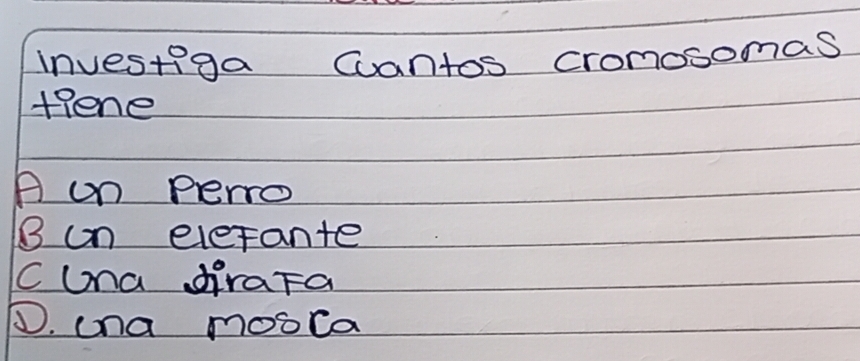 investiga cuantos cromosomas
tiene
A un perro
B un elefante
C una jirafa
D. una mosca